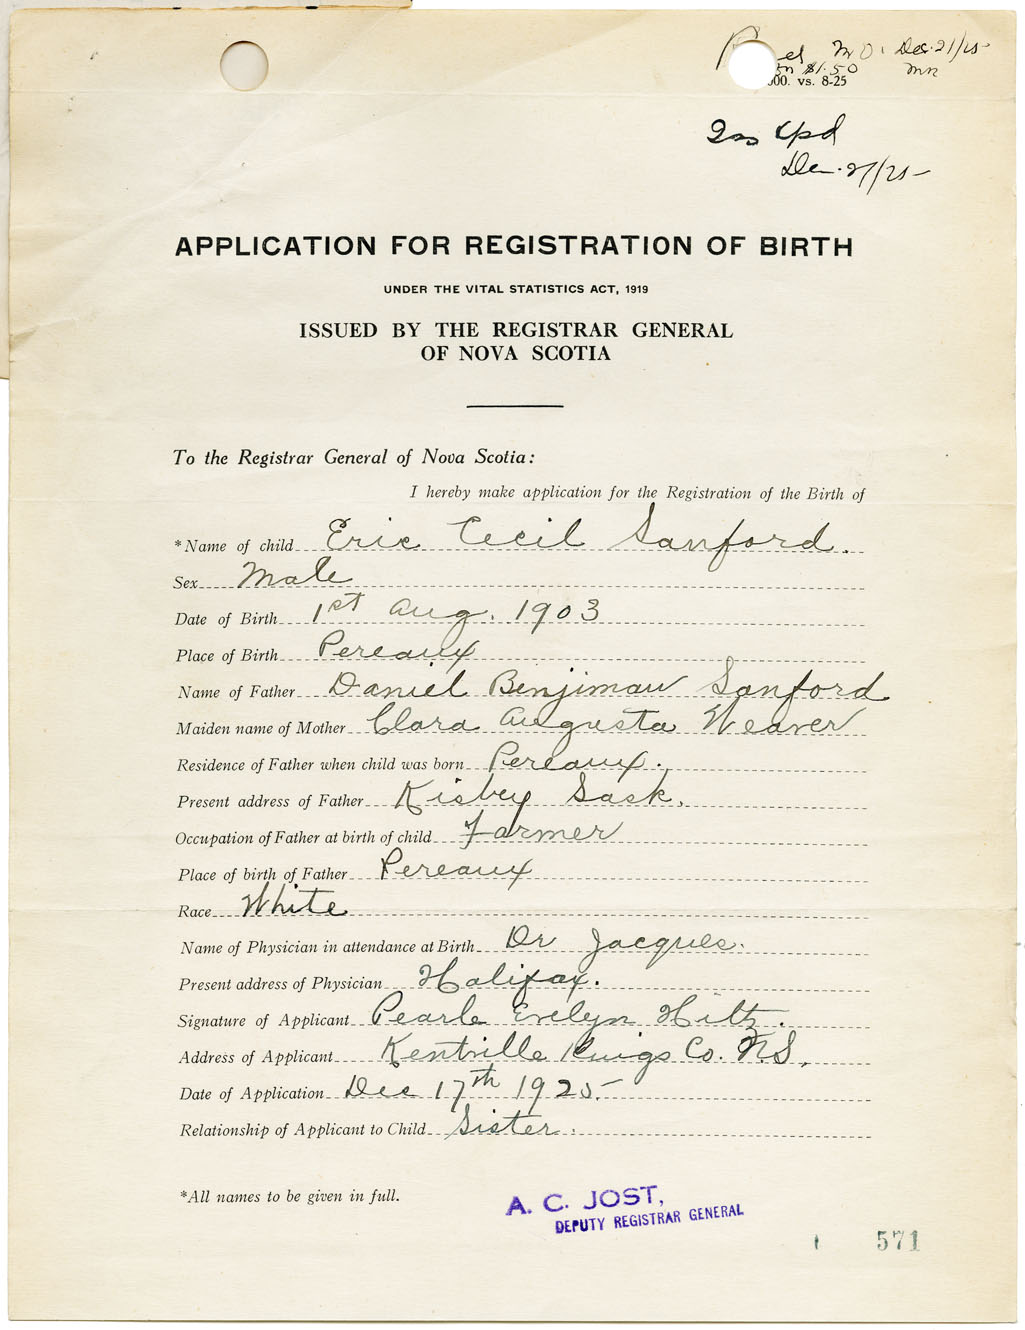 M O. Dec. 21/25-
$1.50 mn
000. vs. 8-25
Dec. 21/25-
APPLICATION FOR REGISTRATION OF BIRTH
UNDER THE VITAL STATISTICS ACT, 1919
ISSUED BY THE REGISTRAR GENERAL
OF NOVA SCOTIA
To the Registrar General of Nova Scotia:
I hereby make application for the Registration of the Birth of
*Name of child Eric Cecil Sanford.
Sex Male
Date of Birth 1st Aug. 1903
Place of Birth Pereaux
Name of Father Daniel Benjiman Sanford
Maiden name of Mother Clara Augusta Weaver
Residence of Father when child was born Pereaux.
Present address of Father Kisbey Sask.
Occupation of Father at birth of child Farmer
Place of birth of Father Pereaux
Race White
Name of Physician in attendance at Birth Dr Jacques.
Present address of Physician Halifax.
Signature of Applicant Pearle Evelyn Hiltz.
Address of Applicant Kentville Kings Co. N.S.
Date of Application Dec 17th 1925-
Relationship of Applicant to Child Sister.
*All names to be given in full.
A. C. JOST,
DEPUTY REGISTRAR GENERAL
571